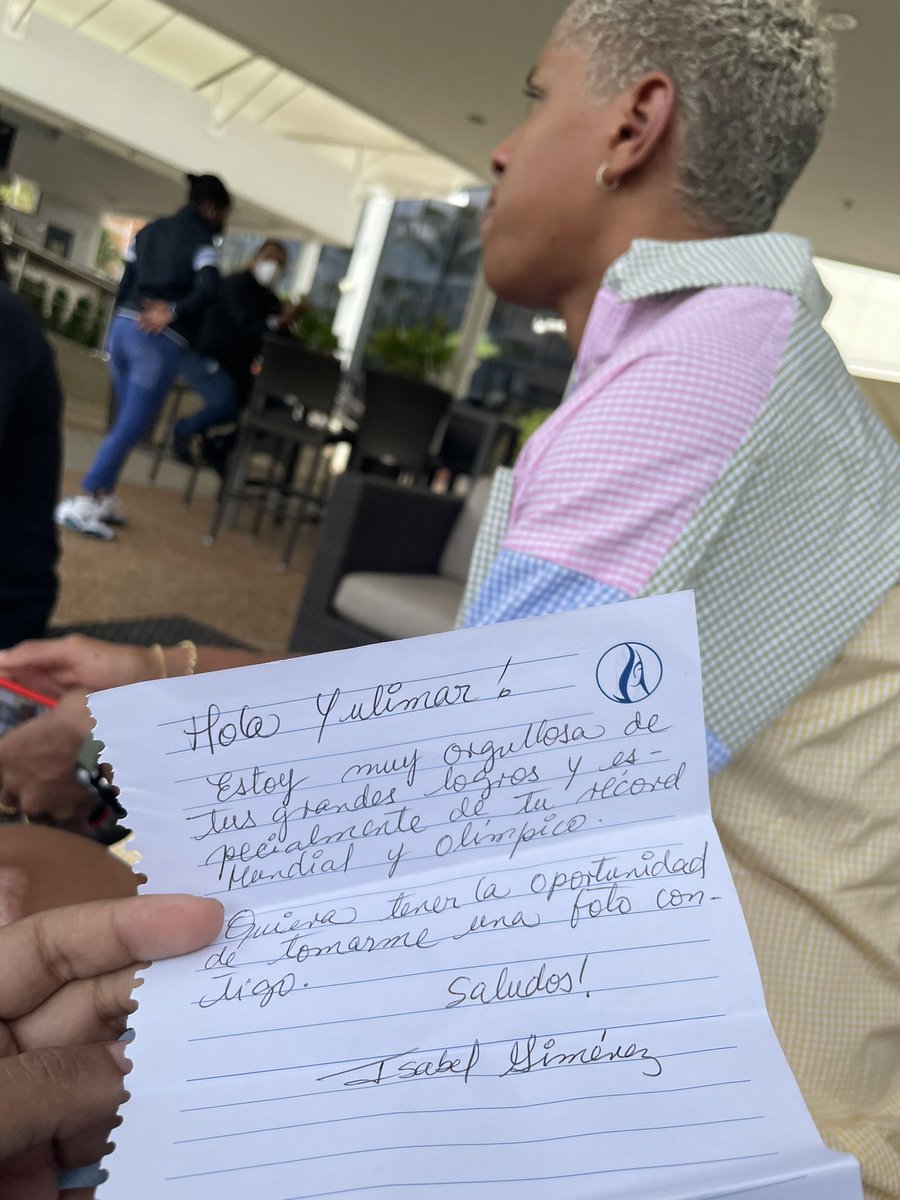 Hola Yulimar!
Estoy muy orgullosa de
tus grandes logros y es-
pecialmente de tu récord
Mundial y Olímpico.
Quiera tener la oportunidad
de tomarme una foto con-
tigo.
Saludos!
Isabel Giménez